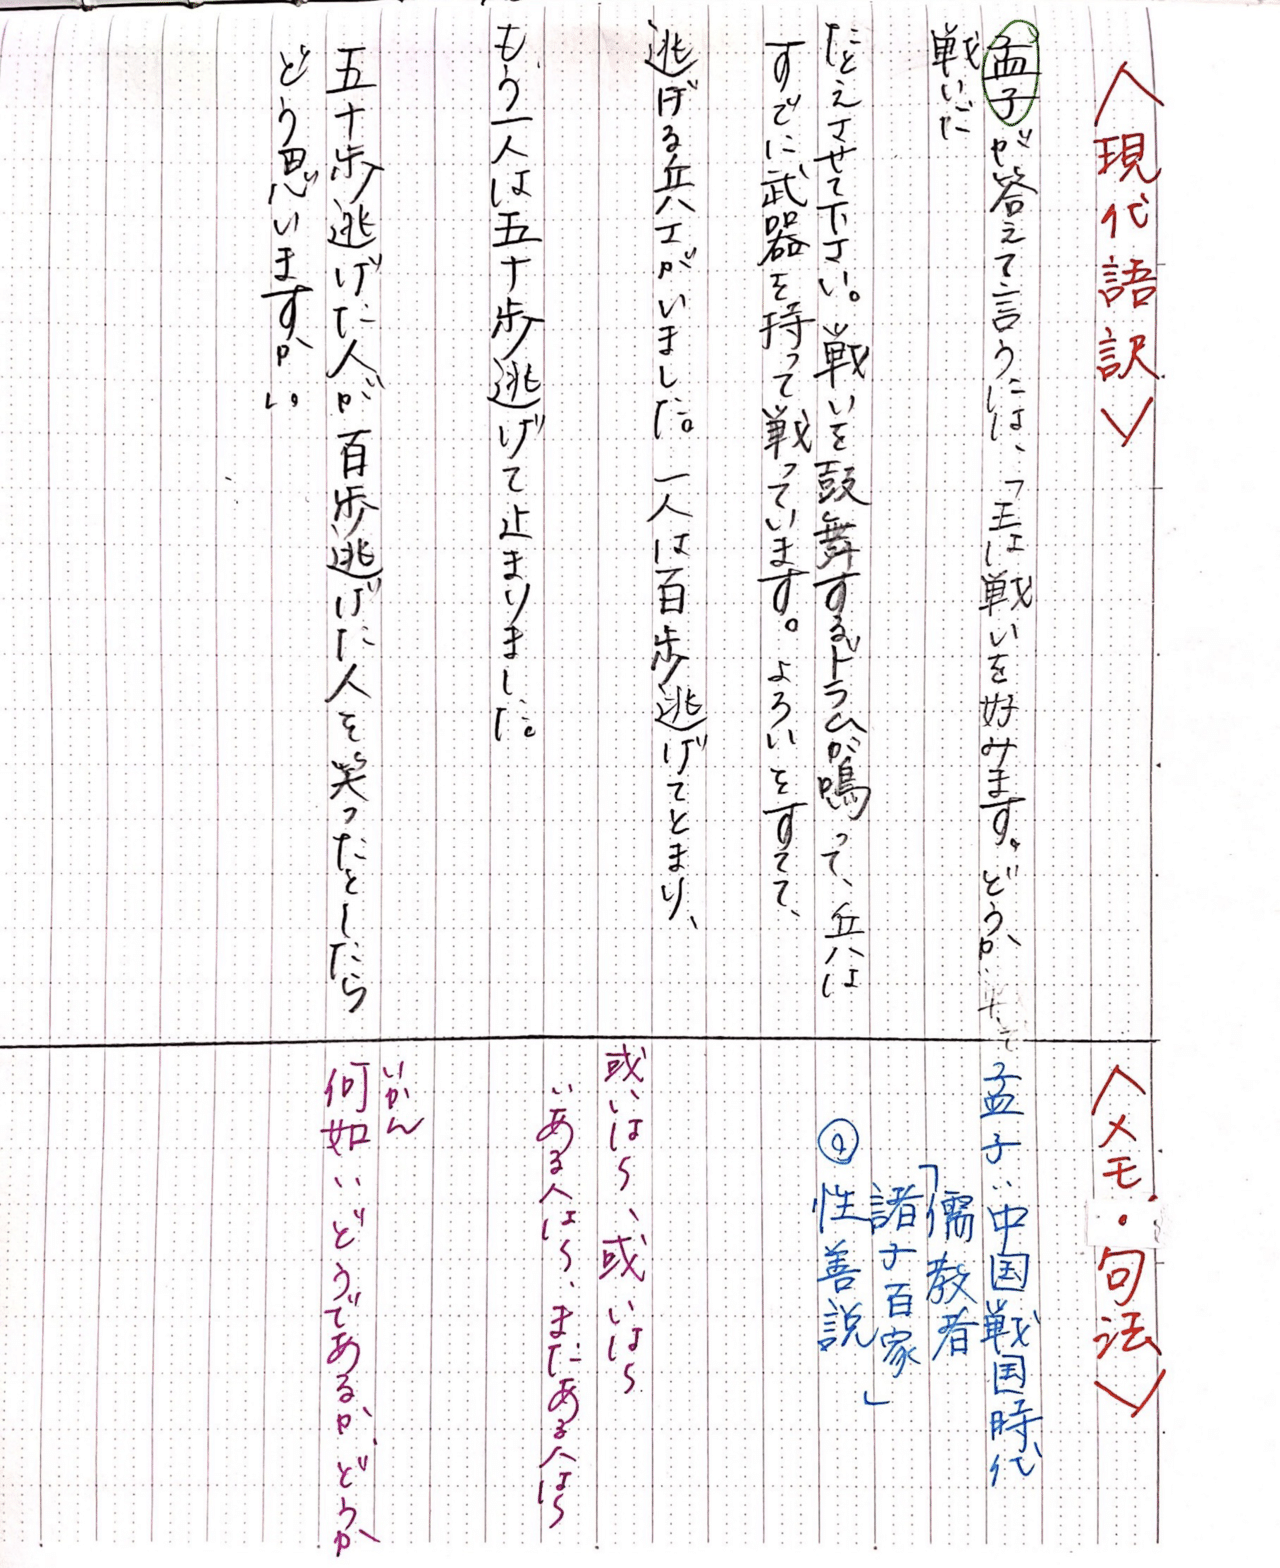 〈現代語訳〉
孟子が答えて言うには、「王は戦いを好みます。どうか
戦いに
たとえさせて下さい。戦いを鼓舞するドラムが鳴って、兵は
すでに武器を持って戦っています。よろいをすてて、
逃げる兵士がいました。一人は百歩逃げてとまり、
もう一人は五十歩逃げて止まりました。
五十歩逃げた人が百歩逃げた人を笑ったとしたら
どう思いますか。
〈メモ・句法〉
孟子‥中国戦国時代
「儒教者
諸子百家」
性善説
或いは〜、或いは〜
‥ある人は〜、またある人は〜
いかん
何如‥どうであるか、どうか